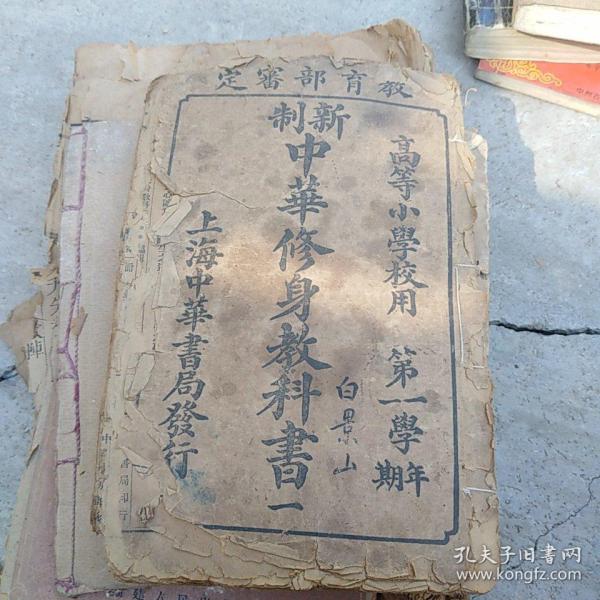 教育部審定
高等小學校用 第一學年
期
新制
中華修身教科書一
白景山
上海中華書局發行
書局印行
孔夫子旧书网
www.kongfz.com